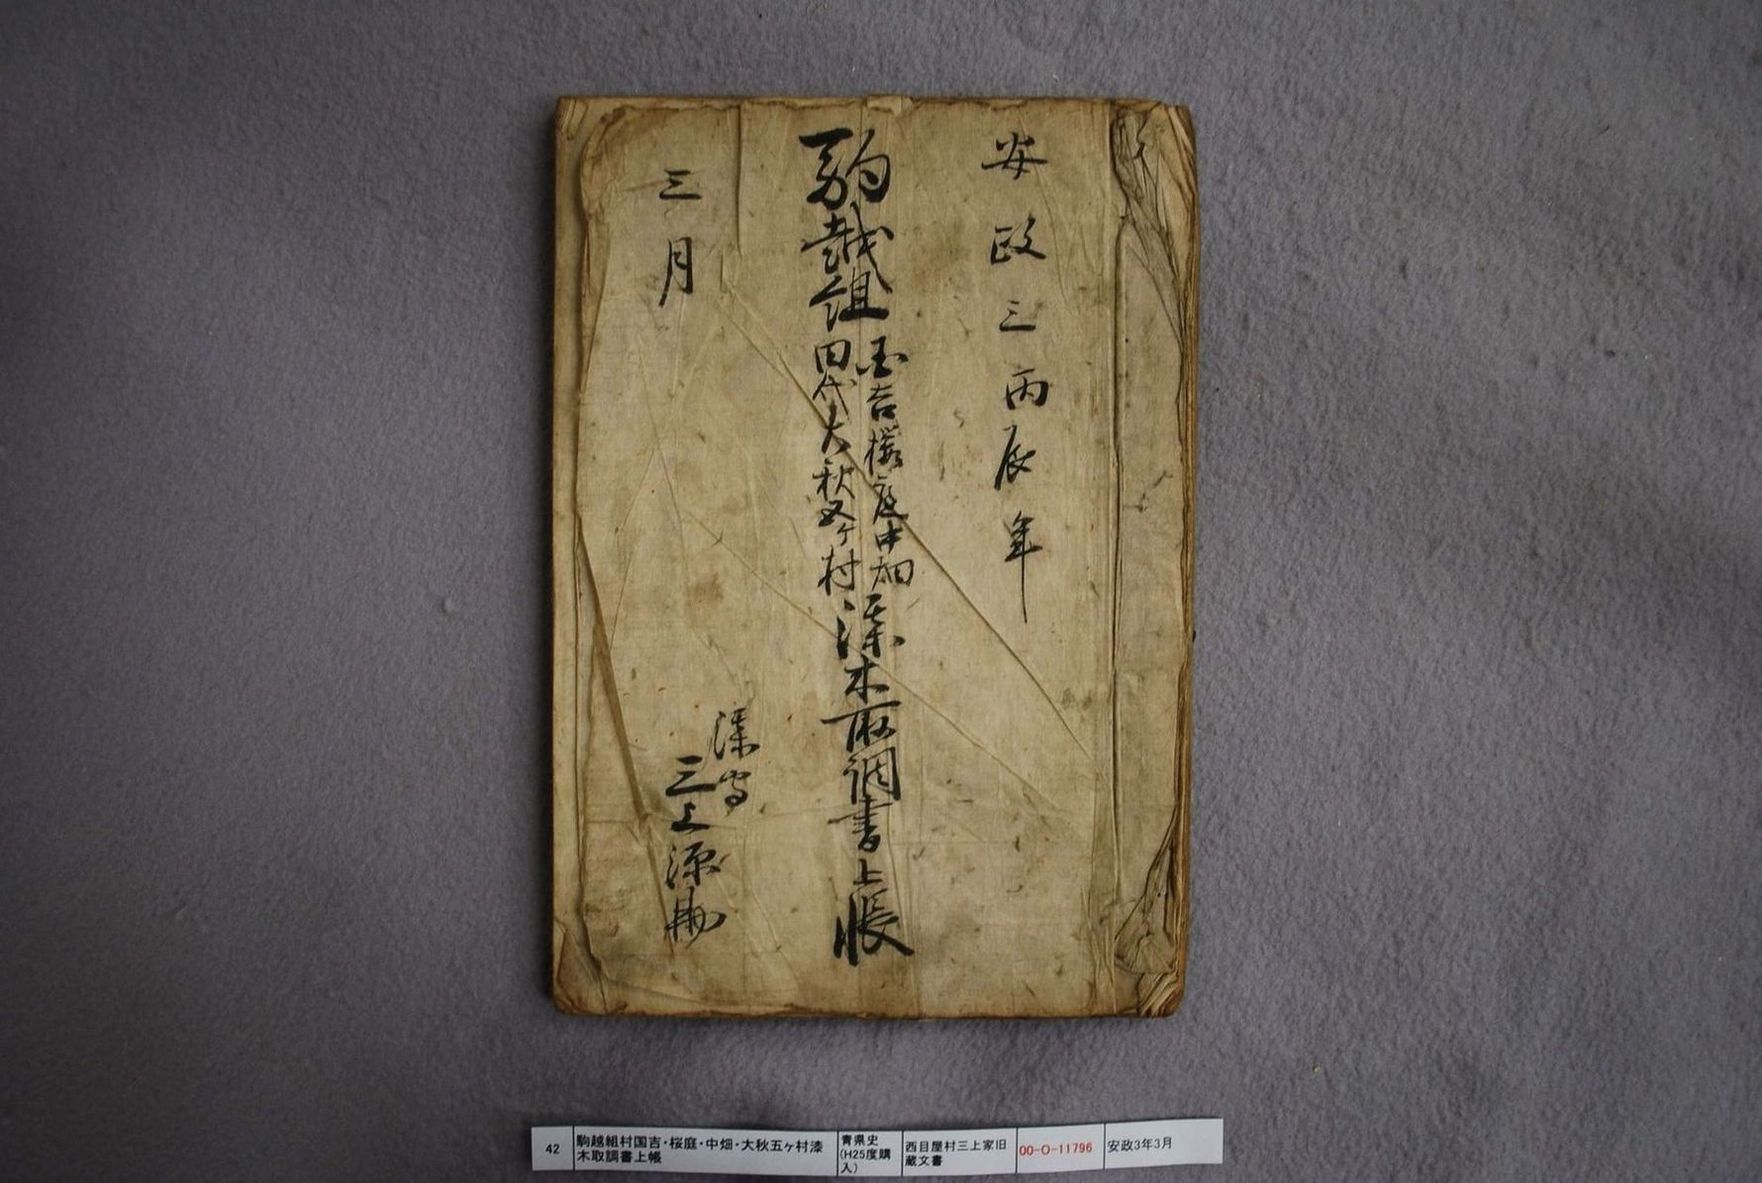 安政三丙辰年
駒越組
国吉櫻庭中畑
田代大秋五ケ村
漆木取調書上帳
三月
漆守
三上源
42
駒越組村国吉・桜庭・中畑・大秋五ヶ村漆
木取調書上帳
青県史
(H25度購
入)
西目屋村三上家旧
蔵文書
00-O-11796
安政3年3月